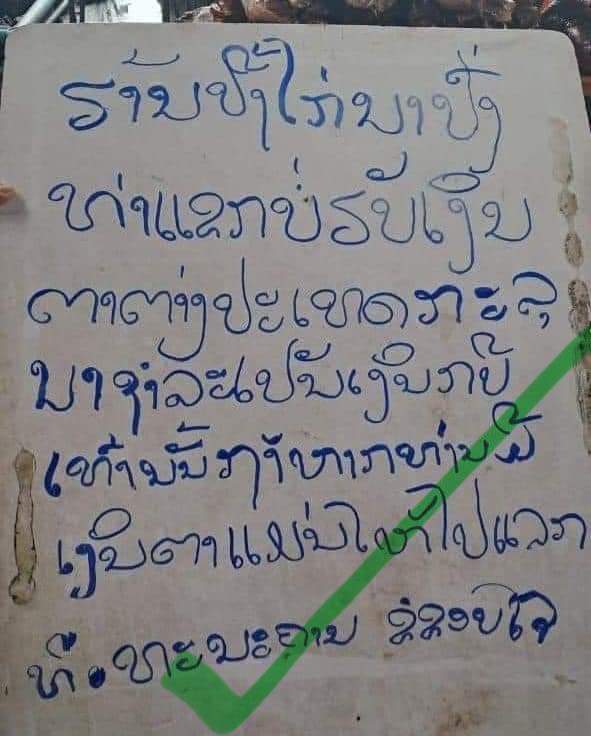 ຮ້ານປີ້ງໄກ່ນາປົ່ງ
ທ່າແຂກບໍ່ຮັບເງິນ
ຕາຕ່າງປະເທດກະລຸ
ນາຊຳລະເປັນເງິນກີບ
ເທົ່ານັ້ນ ຖ້າຫາກທ່ານມີ
ເງິນຕາແມ່ນໃຫ້ໄປແລກ
ທີ່ທະນະຄານ ຂໍຂອບໃຈ